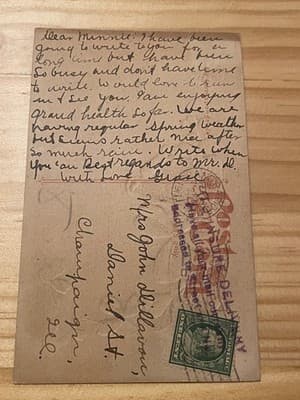 Dear Minnie: I have been
going to write to you for a
long time but have been
so busy and don't have time
to write. Would love to run
in & see you. I am enjoying
grand health so far. We are
having regular Spring weather
but seems rather nice after
so much rain. Write when
you can. Best regards to Mr. D.
With love Grace
Mrs John Dillavou,
Daniel St.
Champaign,
Ill.
Post
DELIVERY